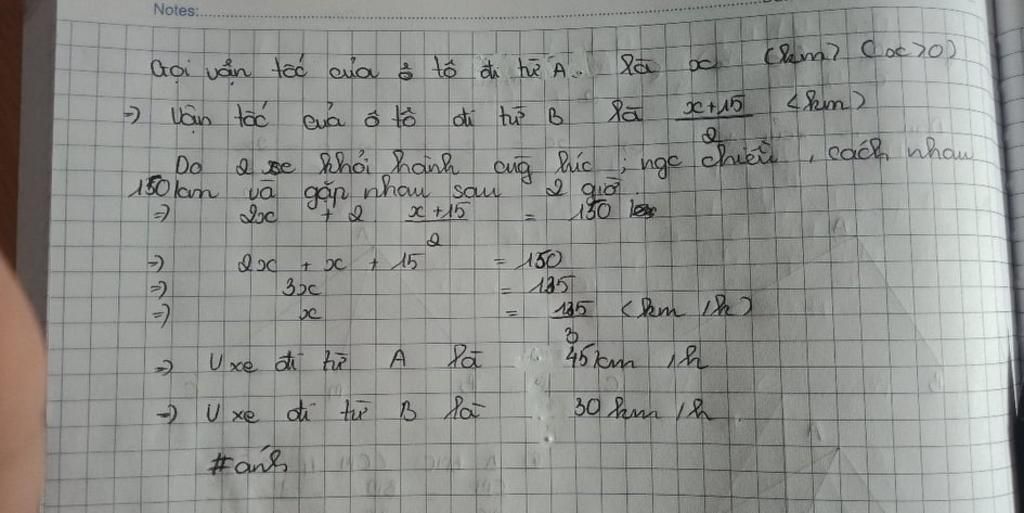 Notes:
Gọi vận tốc của ô tô đi từ A là x (km) (x>0)
=> Vận tốc của ô tô đi từ B là \frac{x+15}{2} (km)
Do 2 xe khởi hành cùg lúc; ngc chiều, cách nhau
150km và gặp nhau sau 2 giờ
=> 2x + 2 \frac{x+15}{2} = 150
=> 2x + x + 15 = 150
=> 3x = 135
=> x = \frac{135}{3} (km/h)
=> V xe đi từ A là 45km/h
=> V xe đi từ B là 30km/h
#anh